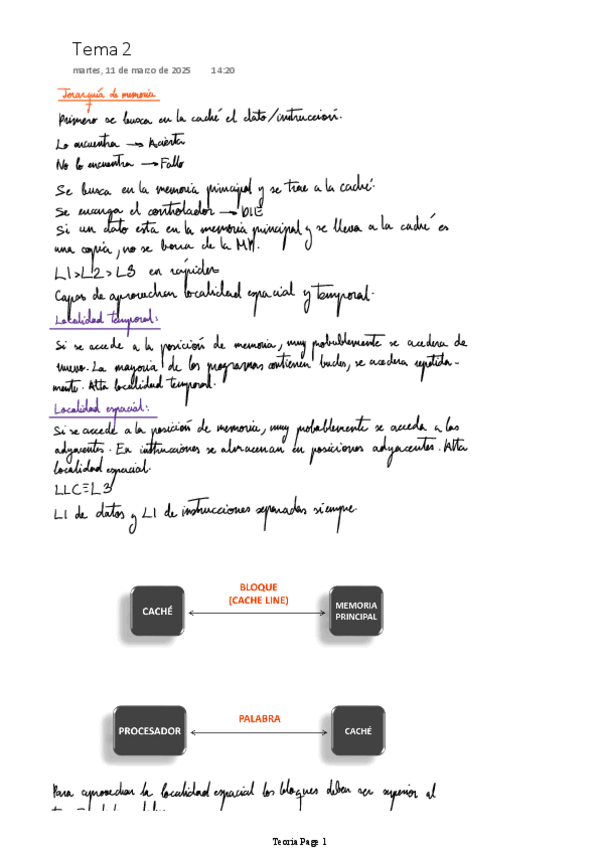 Tema 2
martes, 11 de marzo de 2025 14:20
Jerarquía de memoria
Primero se busca en la caché el dato/instrucción.
Lo encuentra → Acierto
No lo encuentra → Fallo
Se busca en la memoria principal y se trae a la caché.
Se encarga el controlador →
Si un dato esta en la memoria principal y se lleva a la caché es
una copia, no se borra de la MP.
L1>L2>L3 en rápidos
Capas de aprovechan localidad espacial y temporal.
Localidad temporal:
Si se accede a la posición de memoria, muy probablemente se accedera de
nuevo. La mayoria de los programas contienen bucles, se accedera repetida-
mente. Alta localidad temporal.
Localidad espacial:
Si se accede a la posición de memoria, muy probablemente se acceda a las
adyacentes. En instrucciones se almacenan en posiciones adyacentes. Alta
localidad espacial.
LLC≡L3
L1 de datos y L1 de instrucciones separadas siempre.
BLOQUE
(CACHE LINE)
CACHÉ
MEMORIA
PRINCIPAL
PALABRA
PROCESADOR
CACHÉ
Para aprovechar la localidad espacial los bloques deben ser superior al
Teoria Page 1